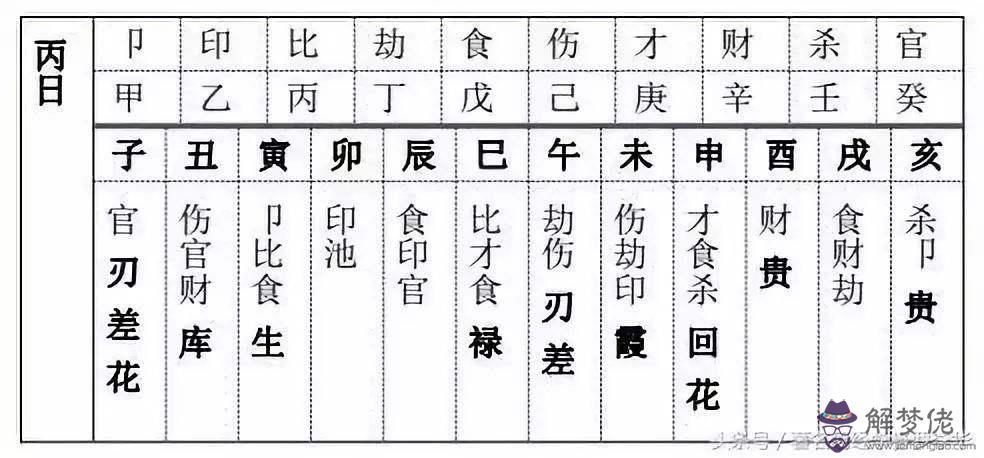 丙日
卩 印 比 劫 食 伤 才 财 杀 官
甲 乙 丙 丁 戊 己 庚 辛 壬 癸
子 丑 寅 卯 辰 巳 午 未 申 酉 戌 亥
官刃差花
伤官财库
卩比食生
印池
食印官
比才食禄
劫伤刃差
伤劫印霞
才食杀回花
财贵
食财劫
杀卩贵
解梦佬